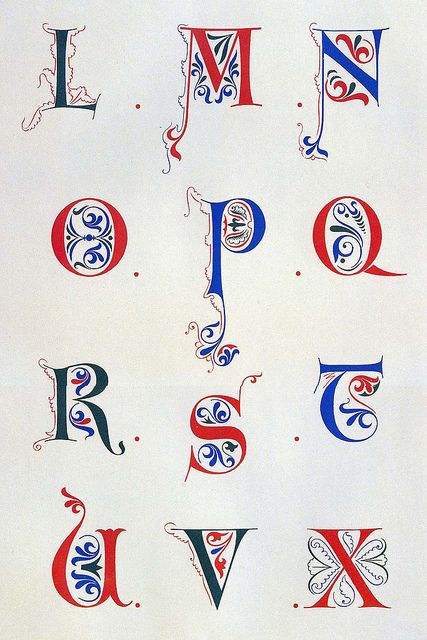 L . M . N
O . P . Q
R . S . T
U . V . X